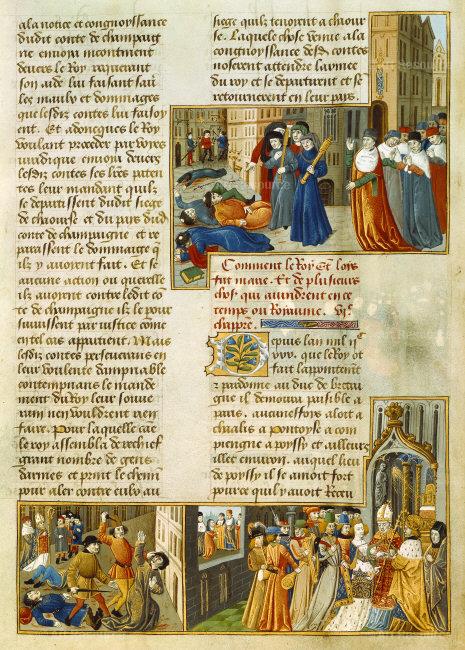 a la notice et congnoissance
dudit conte de champaig
ne envoia incontinent
devers le Roy requerant
son aide lui faisant sa
les maulx et dommages
que lesdiz contes lui faisoy
ent. Et adoncques le Roy
voulant proceder par voyes
envoia devers
lesdiz contes ses lres paten
tes leur mandant quilz
se departissent dudit siege
de chaourse et du pays dud
conte de champaigne et re
parassent le dommaige q
ilz y avoient fait. Et se
aucune action ou querelle
ilz avoient contre ledit co
te de champaigne ilz le pour
suivissent par iustice come
en tel cas appartient. Mais
lesdiz contes perseverans en
leur voulente dampnable
contempnans le mande
ment du Roy leur souve
rain nen vouldrent rien
faire. Pour laquelle cause
le roy assembla derechief
grant nombre de gens
darmes et print le chemin
pour aler contre eulx au
siege quilz tenoient a chaour
se. Laquelle chose venue a la
congnoissance desdiz contes
noserent attendre larmee
du roy et se departirent et se
retournerent en leur pays.
Comment le Roy St loys
fut marie. Et de plusieurs
choses qui avindrent en ce
temps ou Royaume. vie
chapitre.
Depuis lan mil iic
xxxv. que le Roy ot
fait lapointement
et pardonne au duc de bretai
gne il demoura paisible a
paris. aucuneffois aloit a
chaalis a pontoise a com
piengne a poyssy et ailleurs
illec environ. auquel lieu
de poyssy il se amoit fort
pource quil y avoit Receu